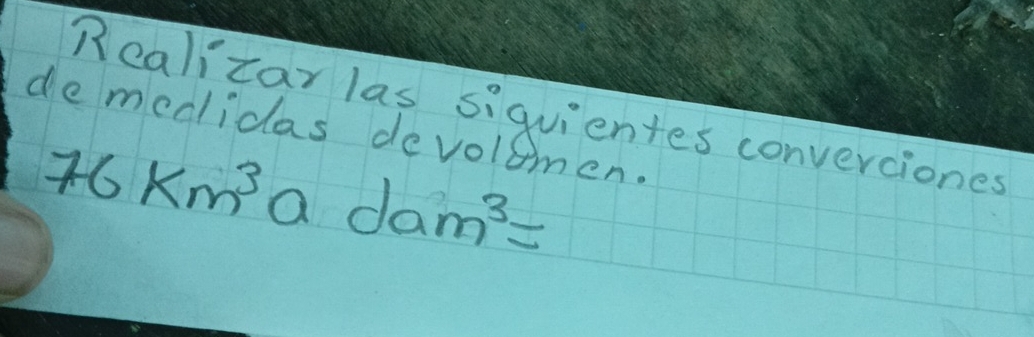 Realizar las siguientes converciones
de medidas de volumen.
76 Km³ a dam³=